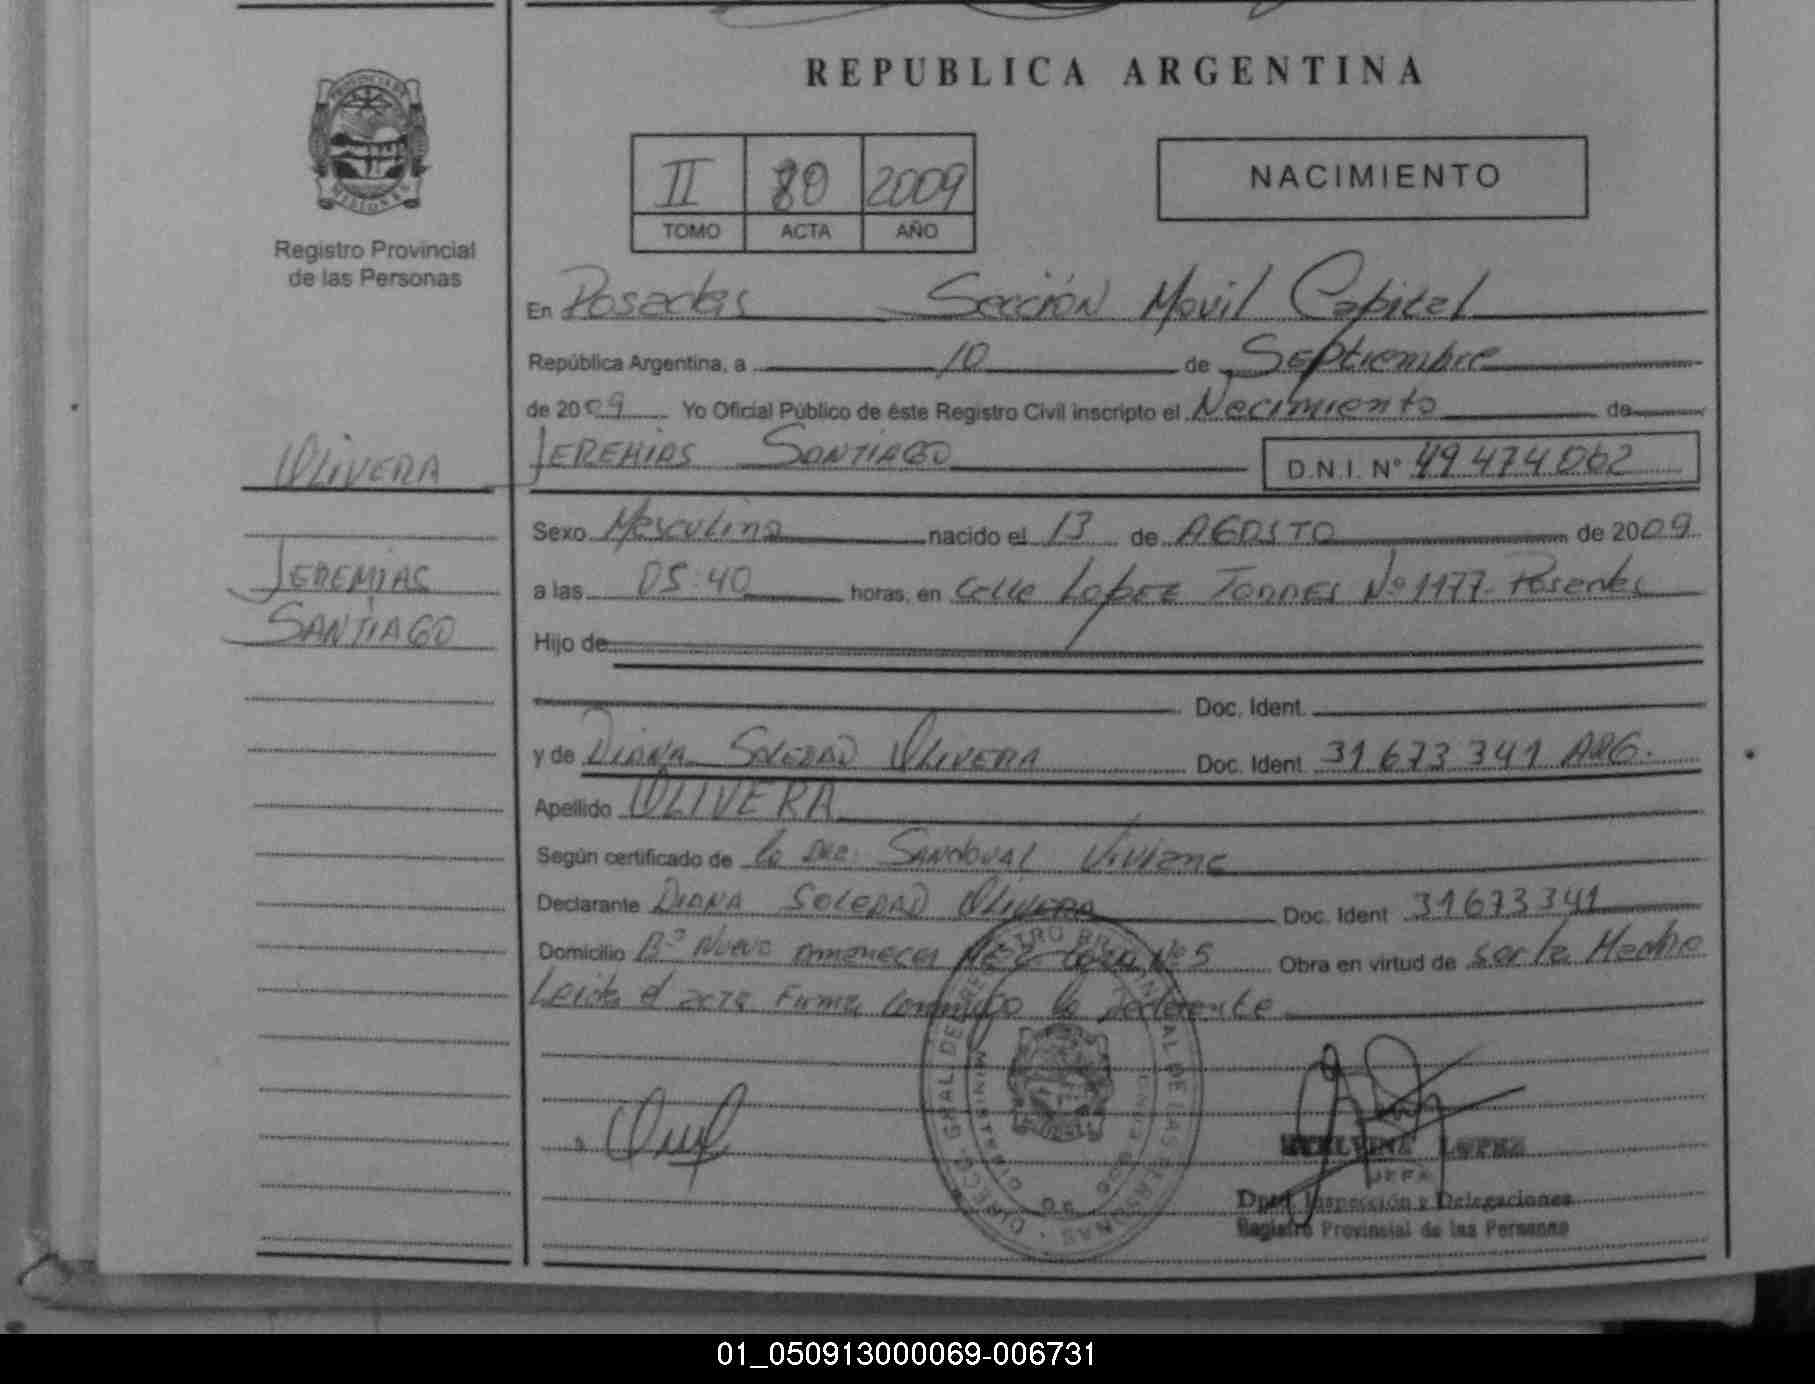 REPUBLICA ARGENTINA
PROVINCIA DE
MISIONES
Registro Provincial
de las Personas
II 80 2009
TOMO ACTA AÑO
NACIMIENTO
En Posadas Sección Movil Capital
República Argentina, a 10 de Septiembre
de 2009 Yo Oficial Público de éste Registro Civil inscripto el Nacimiento de
OLIVERA
JEREMIAS SANTIAGO D.N.I. Nº 49 474 062
Sexo Masculino nacido el 13 de AGOSTO de 2009
JEREMIAS
SANTIAGO
a las 05:40 horas, en Calle Lopez Torres Nº 1177 - Posadas
Hijo de
Doc. Ident.
y de DIANA SOLEDAD OLIVERA Doc. Ident 31 673 341 ARG.
Apellido OLIVERA
Según certificado de la Dra. SANDOVAL Viviana
Declarante DIANA SOLEDAD OLIVERA Doc. Ident 31673341
Domicilio Bº Nuevo Amanecer Nº 5 Obra en virtud de ser la Madre
Leida el acta Firma conmigo la declarante
DIREC. GRAL. DE REGISTRO PROVINCIAL DE LAS PERSONAS
MINISTERIO DE GOBIERNO
LOPEZ
JEFA
Dpto. Inspección y Delegaciones
Registro Provincial de las Personas
01_050913000069-006731